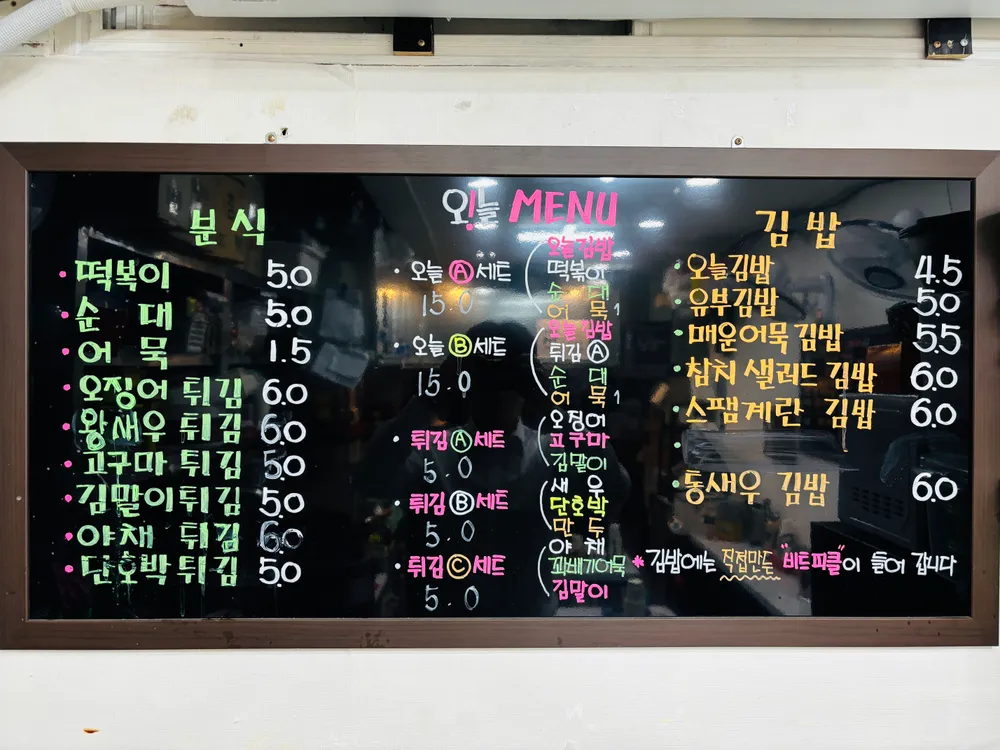 오!늘 MENU
분식
떡볶이 5.0
순대 5.0
어묵 1.5
오징어 튀김 6.0
왕새우 튀김 6.0
고구마 튀김 5.0
김말이 튀김 5.0
야채 튀김 6.0
단호박 튀김 5.0
오늘 Ⓐ 세트
15.0
오늘김밥
떡볶이
순대
어묵 1
오늘 Ⓑ 세트
15.0
오늘김밥
튀김 Ⓐ
순대
어묵 1
튀김 Ⓐ 세트
5.0
오징어
고구마
김말이
튀김 Ⓑ 세트
5.0
새우
단호박
만두
튀김 Ⓒ 세트
5.0
야채
꽈배기어묵
김말이
김밥
오늘김밥 4.5
유부김밥 5.0
매운어묵김밥 5.5
참치 샐러드 김밥 6.0
스팸계란 김밥 6.0
통새우 김밥 6.0
* 김밥에는 직접만든 "비트피클"이 들어 갑니다